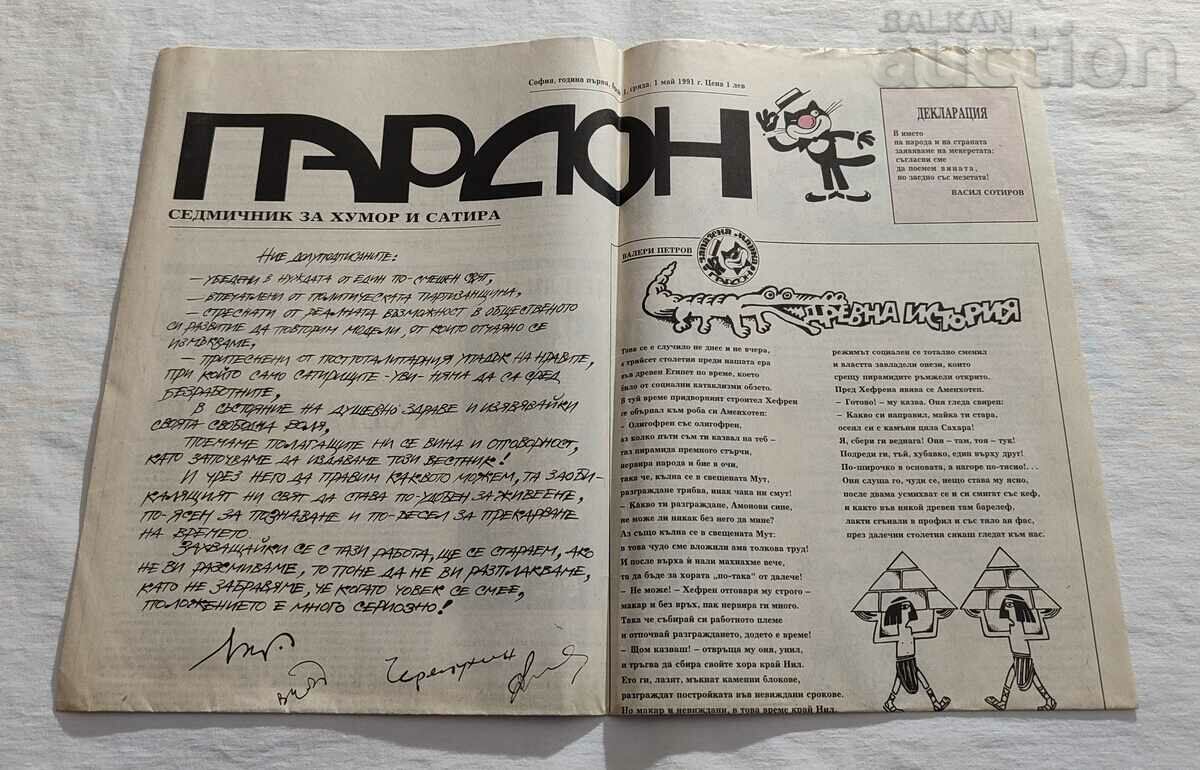 BALKAN
auction
София, година първи, 1, сряда, 1 май 1991 г. Цена 1 лев
ПАРДОН
СЕДМИЧНИК ЗА ХУМОР И САТИРА
ДЕКЛАРАЦИЯ
В името
на народа и на страната
заявяваме на мекеретата:
съгласни сме
да поемем вината,
но заедно със мезетата!
ВАСИЛ СОТИРОВ
Ние долуподписаните:
– убедени в нуждата от един по-смешен свят,
– впечатлени от политическата партизанщина,
– стреснати от реалната възможност в общественото
си развитие да повторим модели, от които отчаяно се
измъкваме,
– притеснени от посттоталитарния упадък на нравите,
при който само сатириците – уви – няма да са сред
безработните,
в състояние на душевно здраве и изявявайки
своята свободна воля,
поемаме полагащите ни се вина и отговорност,
като започваме да издаваме този вестник!
И чрез него да правим каквото можем, та заоби-
калящият ни свят да става по-удобен за живеене,
по-ясен за познаване и по-весел за прекарване
на времето.
Захващайки се с тази работа, ще се стараем, ако
не ви разсмиваме, то поне да не ви разплакваме,
като не забравяме, че когато човек се смее,
положението е много сериозно!
ВАЛЕРИ ПЕТРОВ
ДРЕВНА ИСТОРИЯ
Това се е случило не днес и не вчера,
а трийсет столетия преди нашата ера
във древен Египет по време, което
било от социални катаклизми обзето.
В туй време придворният строител Хефрен
се обърнал към роба си Аменхотеп:
– Олигофрен със олигофрен,
аз колко пъти съм ти казвал на теб –
таз пирамида премного стърчи,
нервира народа и бие в очи,
така че, кълна се в свещената Мут,
разграждане трябва, инак чака ни смут!
– Какво ти разграждане, Амонови сине,
не може ли някак без него да мине?
Аз също кълна се в свещената Мут:
в това чудо сме вложили ама толкова труд!
И после върха ѝ нали махнахме вече,
та да бъде за хората „по-така" от далече!
– Не може! – Хефрен отговаря му строго –
макар и без връх, пак нервира ги много.
Така че събирай си работното племе
и отпочвай разграждането, додето е време!
– Щом казваш! – отвръща му оня, унил,
и тръгва да сбира свойте хора край Нил.
Ето ги, лазят, мъкнат каменни блокове,
разграждат постройката във невиждани срокове.
Но макар и невиждани, в това време край Нил,
режимът социален се тотално сменил
и властта завладели онези, които
срещу пирамидите ръмжели открито.
Пред Хефрена явява се Аменхотеп.
– Готово! – му казва. Оня гледа свиреп:
– Какво си направил, майка ти стара,
осеял си с камъни цяла Сахара!
Я, сбери ги веднага! Оня – там, тоя – тук!
Подреди ги, тъй, хубавко, един върху друг!
По-широчко в основата, а нагоре по-тясно!. . .
Оня слуша го, чуди се, нещо става му ясно,
после двама усмихват се и си смигат със кеф,
и както във някой древен там барелеф,
лакти сгънали в профил и със тяло ан фас,
през далечни столетия сякаш гледат към нас.